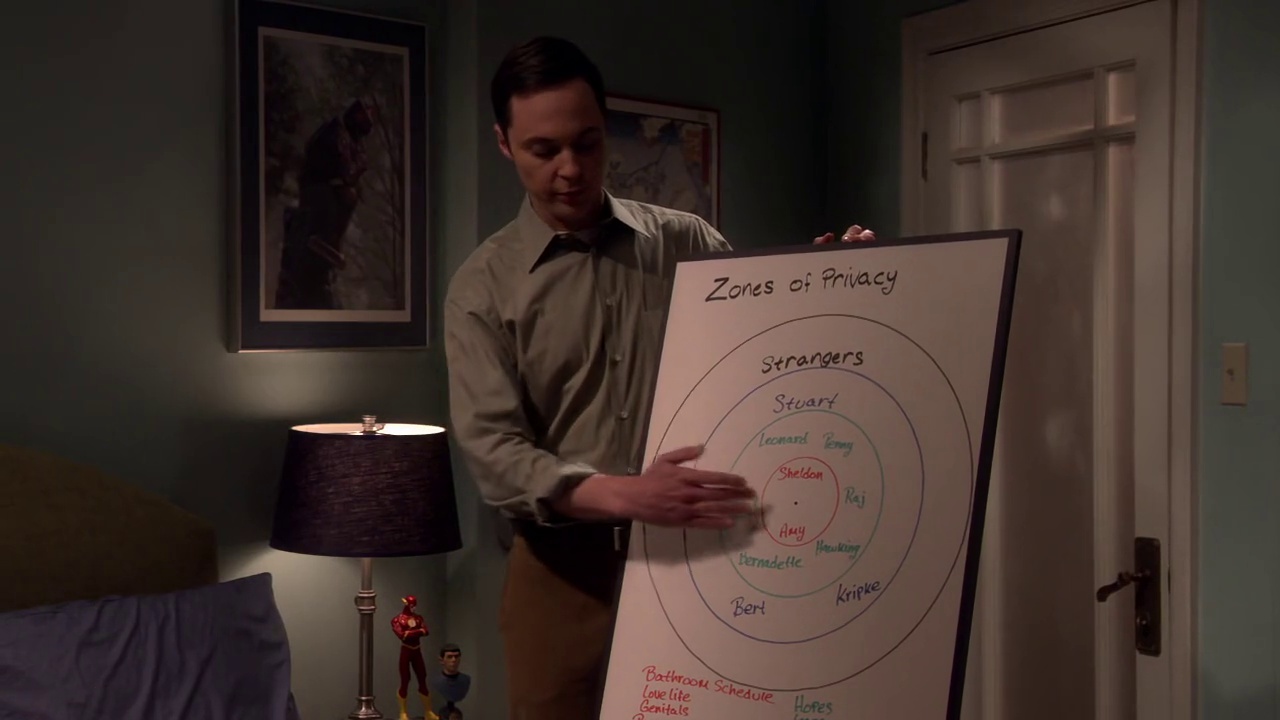 Zones of Privacy
Strangers
Stuart
Leonard Penny
Sheldon
Raj
Amy
Hawking
Bernadette
Kripke
Bert
Bathroom Schedule
Love life
Genitals
Hopes